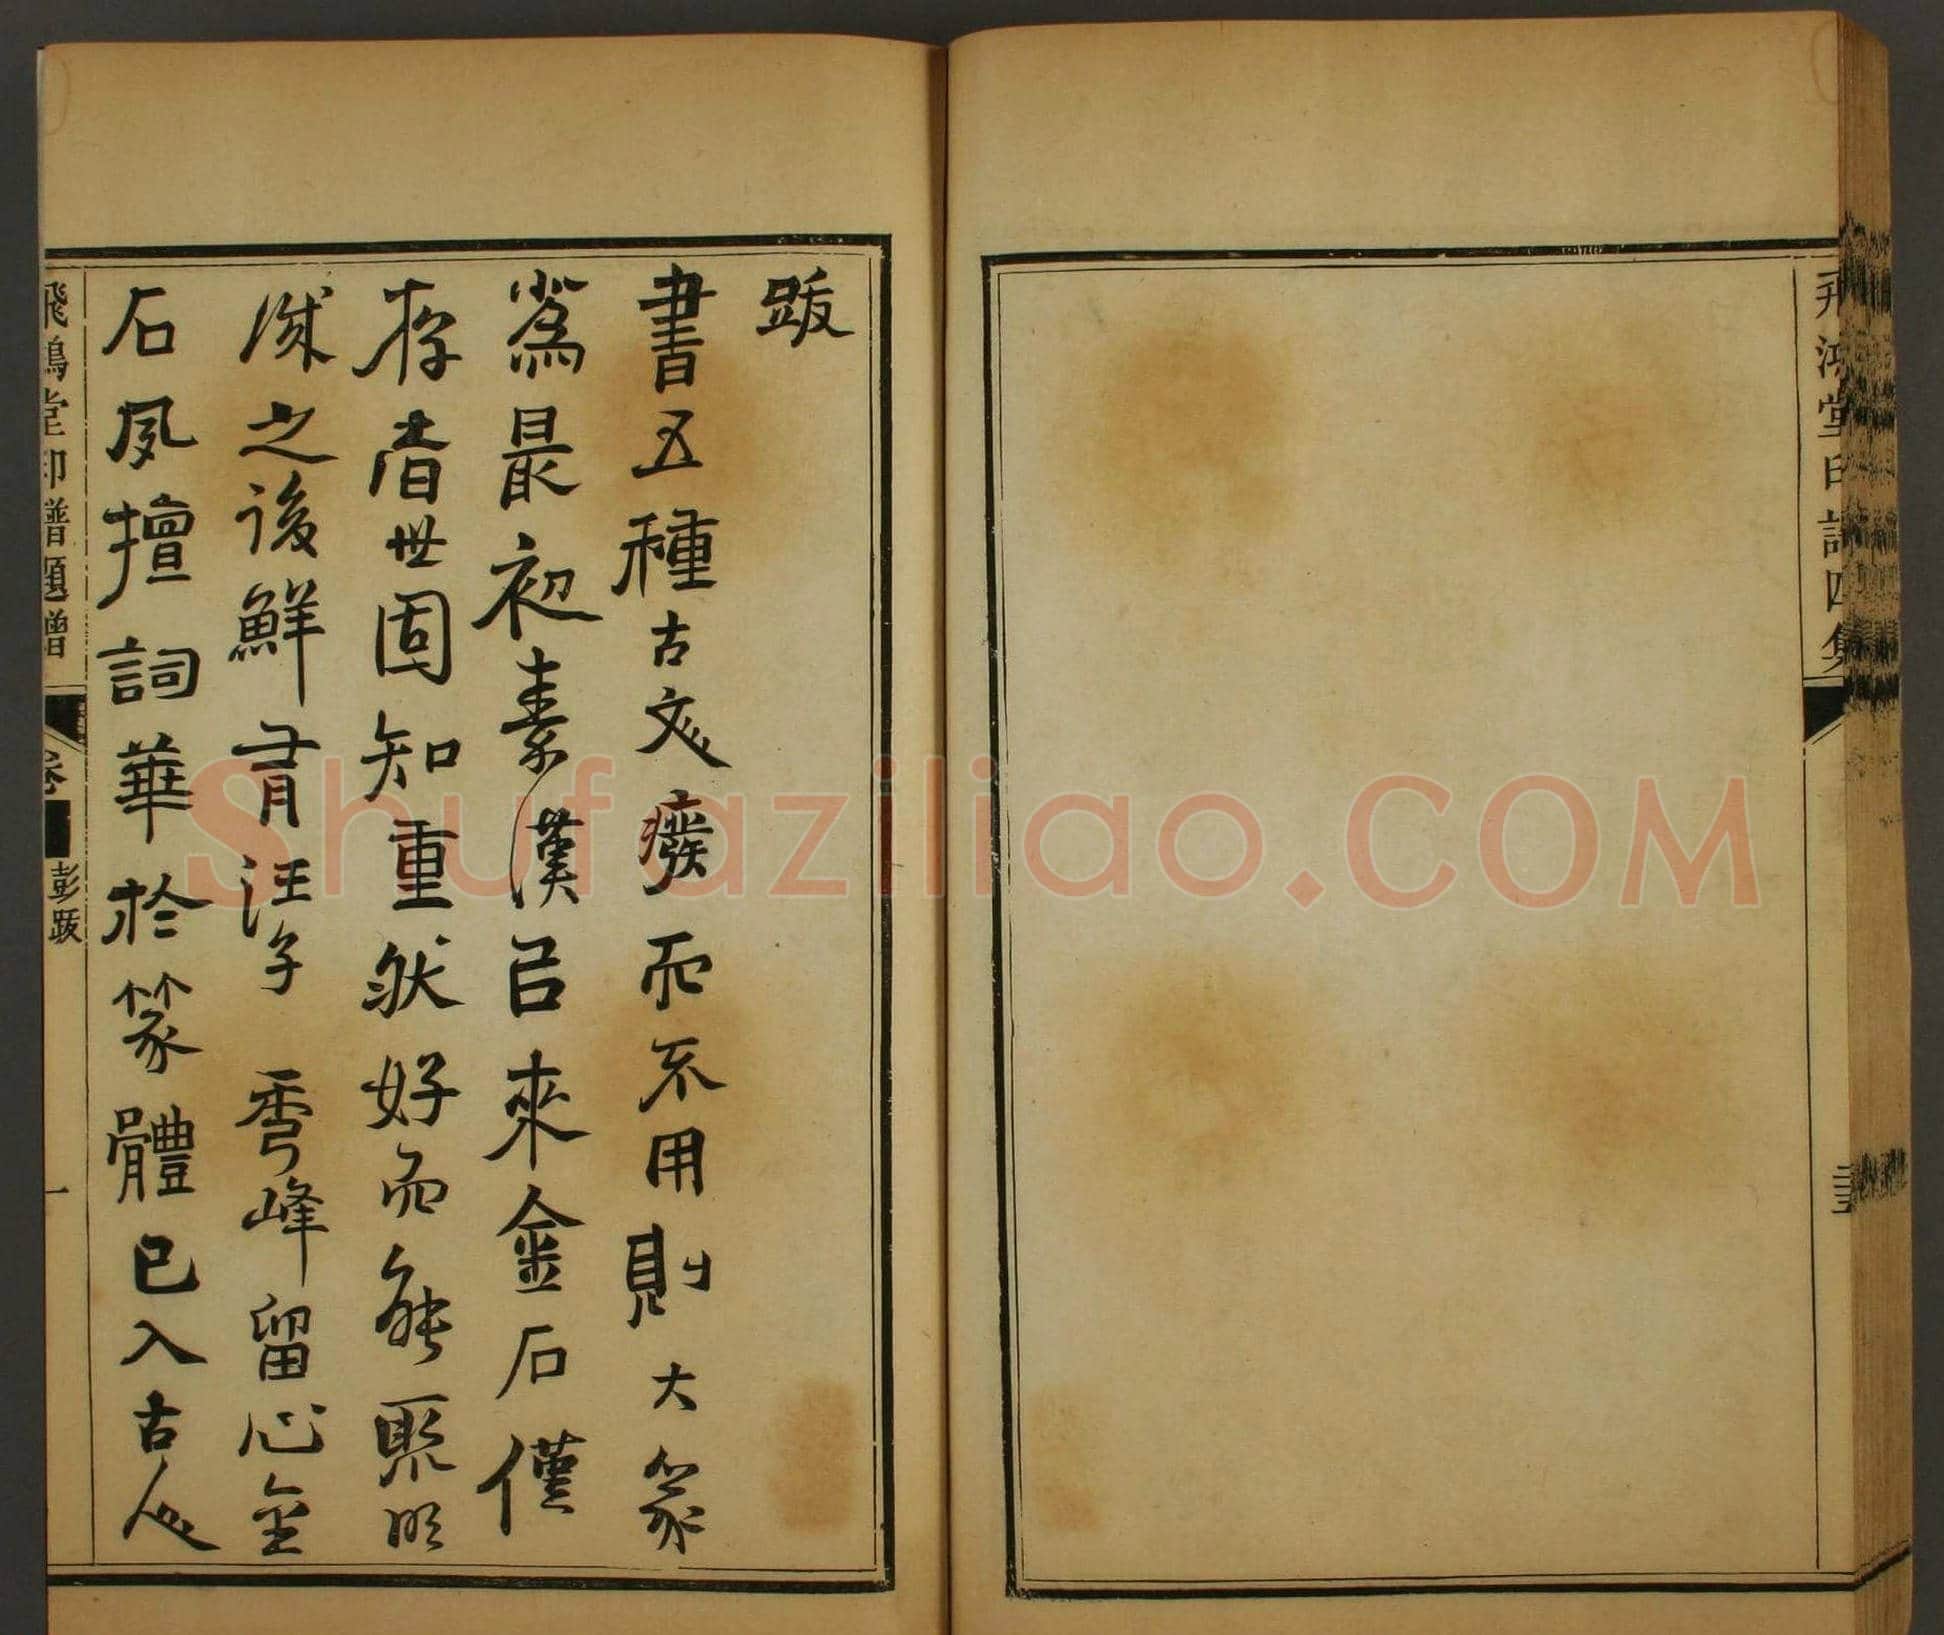 飛鴻堂印譜四集
跋
書五種古文癈而不用則大篆
為最初秦漢㠯來金石僅
存者世固知重然好而能聚明
誠之後鮮有汪子秀峰留心金
石夙擅詞華於篆體已入古人
飛鴻堂印譜題贈
卷
彭跋
一
Shufaziliao.COM